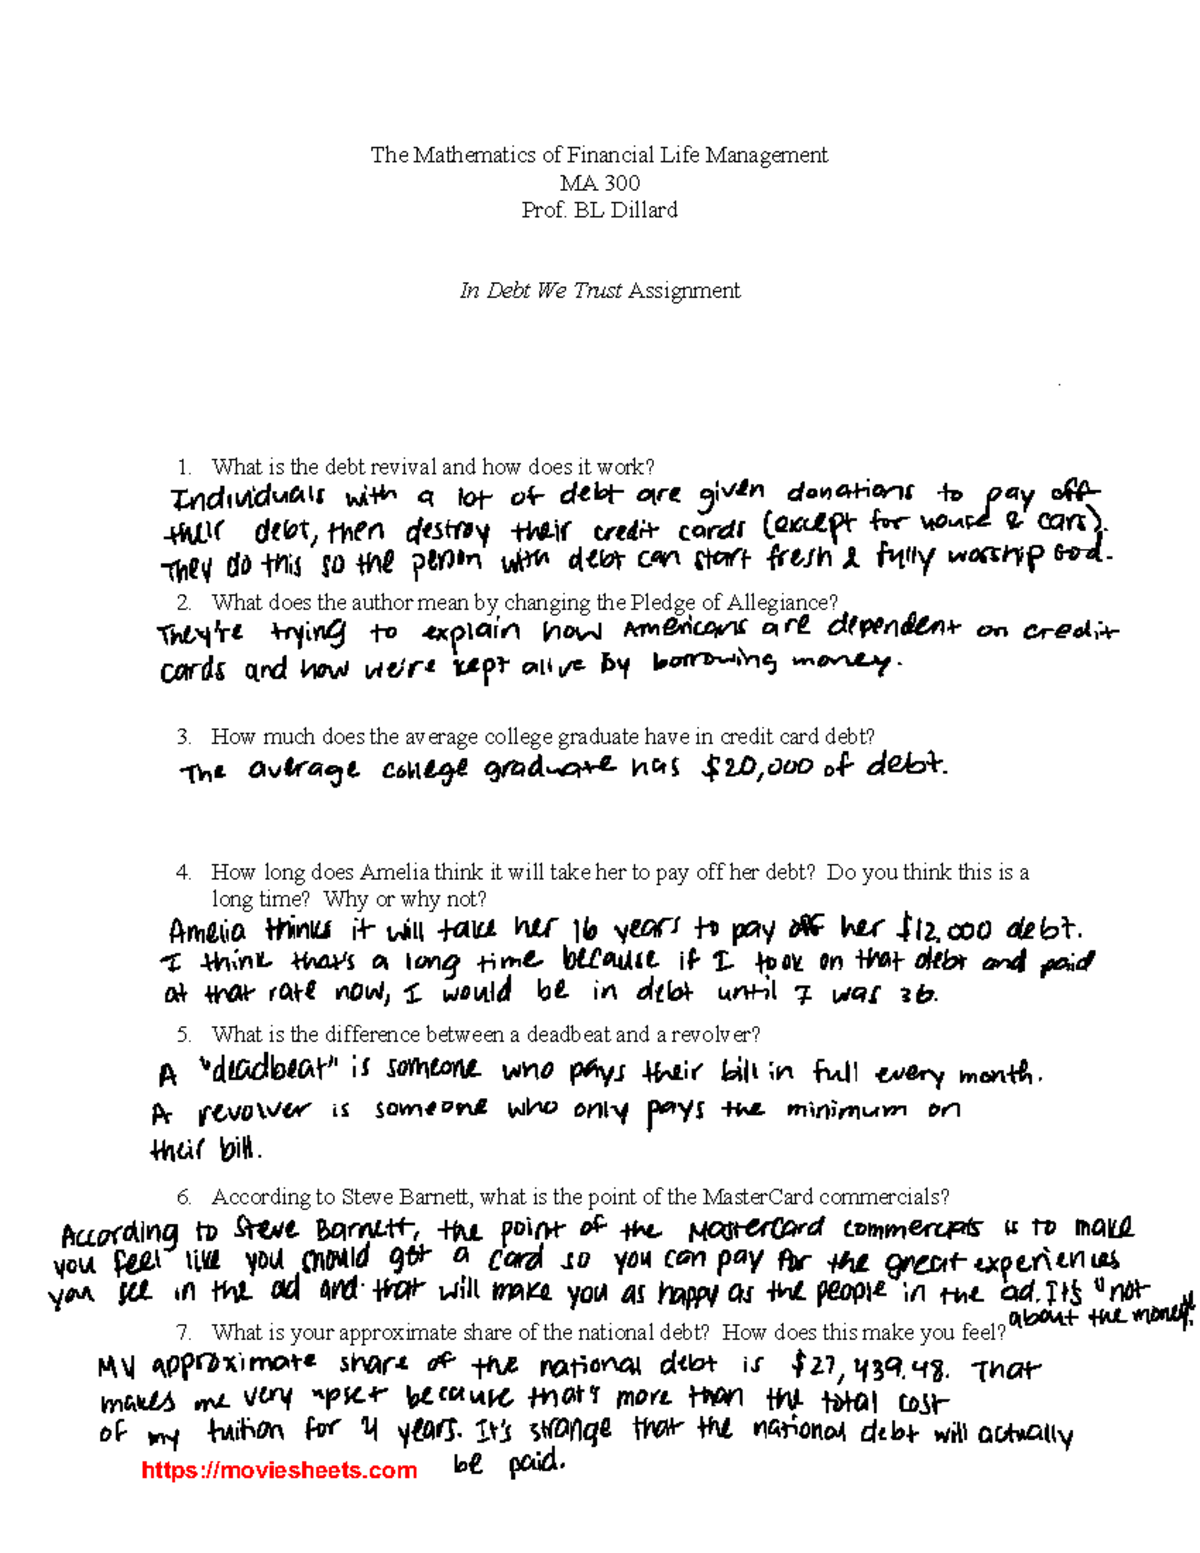 The Mathematics of Financial Life Management
MA 300
Prof. BL Dillard
In Debt We Trust Assignment
1. What is the debt revival and how does it work?
Individuals with a lot of debt are given donations to pay off
their debt, then destroy their credit cards (except for house & cars).
They do this so the person with debt can start fresh & fully worship God.
2. What does the author mean by changing the Pledge of Allegiance?
They're trying to explain how Americans are dependent on credit
cards and how we're kept alive by borrowing money.
3. How much does the average college graduate have in credit card debt?
The average college graduate has $20,000 of debt.
4. How long does Amelia think it will take her to pay off her debt? Do you think this is a
long time? Why or why not?
Amelia thinks it will take her 16 years to pay off her $12,000 debt.
I think that's a long time because if I took on that debt and paid
at that rate now, I would be in debt until I was 36.
5. What is the difference between a deadbeat and a revolver?
A "deadbeat" is someone who pays their bill in full every month.
A revolver is someone who only pays the minimum on
their bill.
6. According to Steve Barnett, what is the point of the MasterCard commercials?
According to Steve Barnett, the point of the MasterCard commercials is to make
you feel like you should get a card so you can pay for the great experiences
you see in the ad and that will make you as happy as the people in the ad. It's "not
about the money".
7. What is your approximate share of the national debt? How does this make you feel?
My approximate share of the national debt is $27,439.48. That
makes me very upset because that's more than the total cost
of my tuition for 4 years. It's strange that the national debt will actually
be paid.
https://moviesheets.com